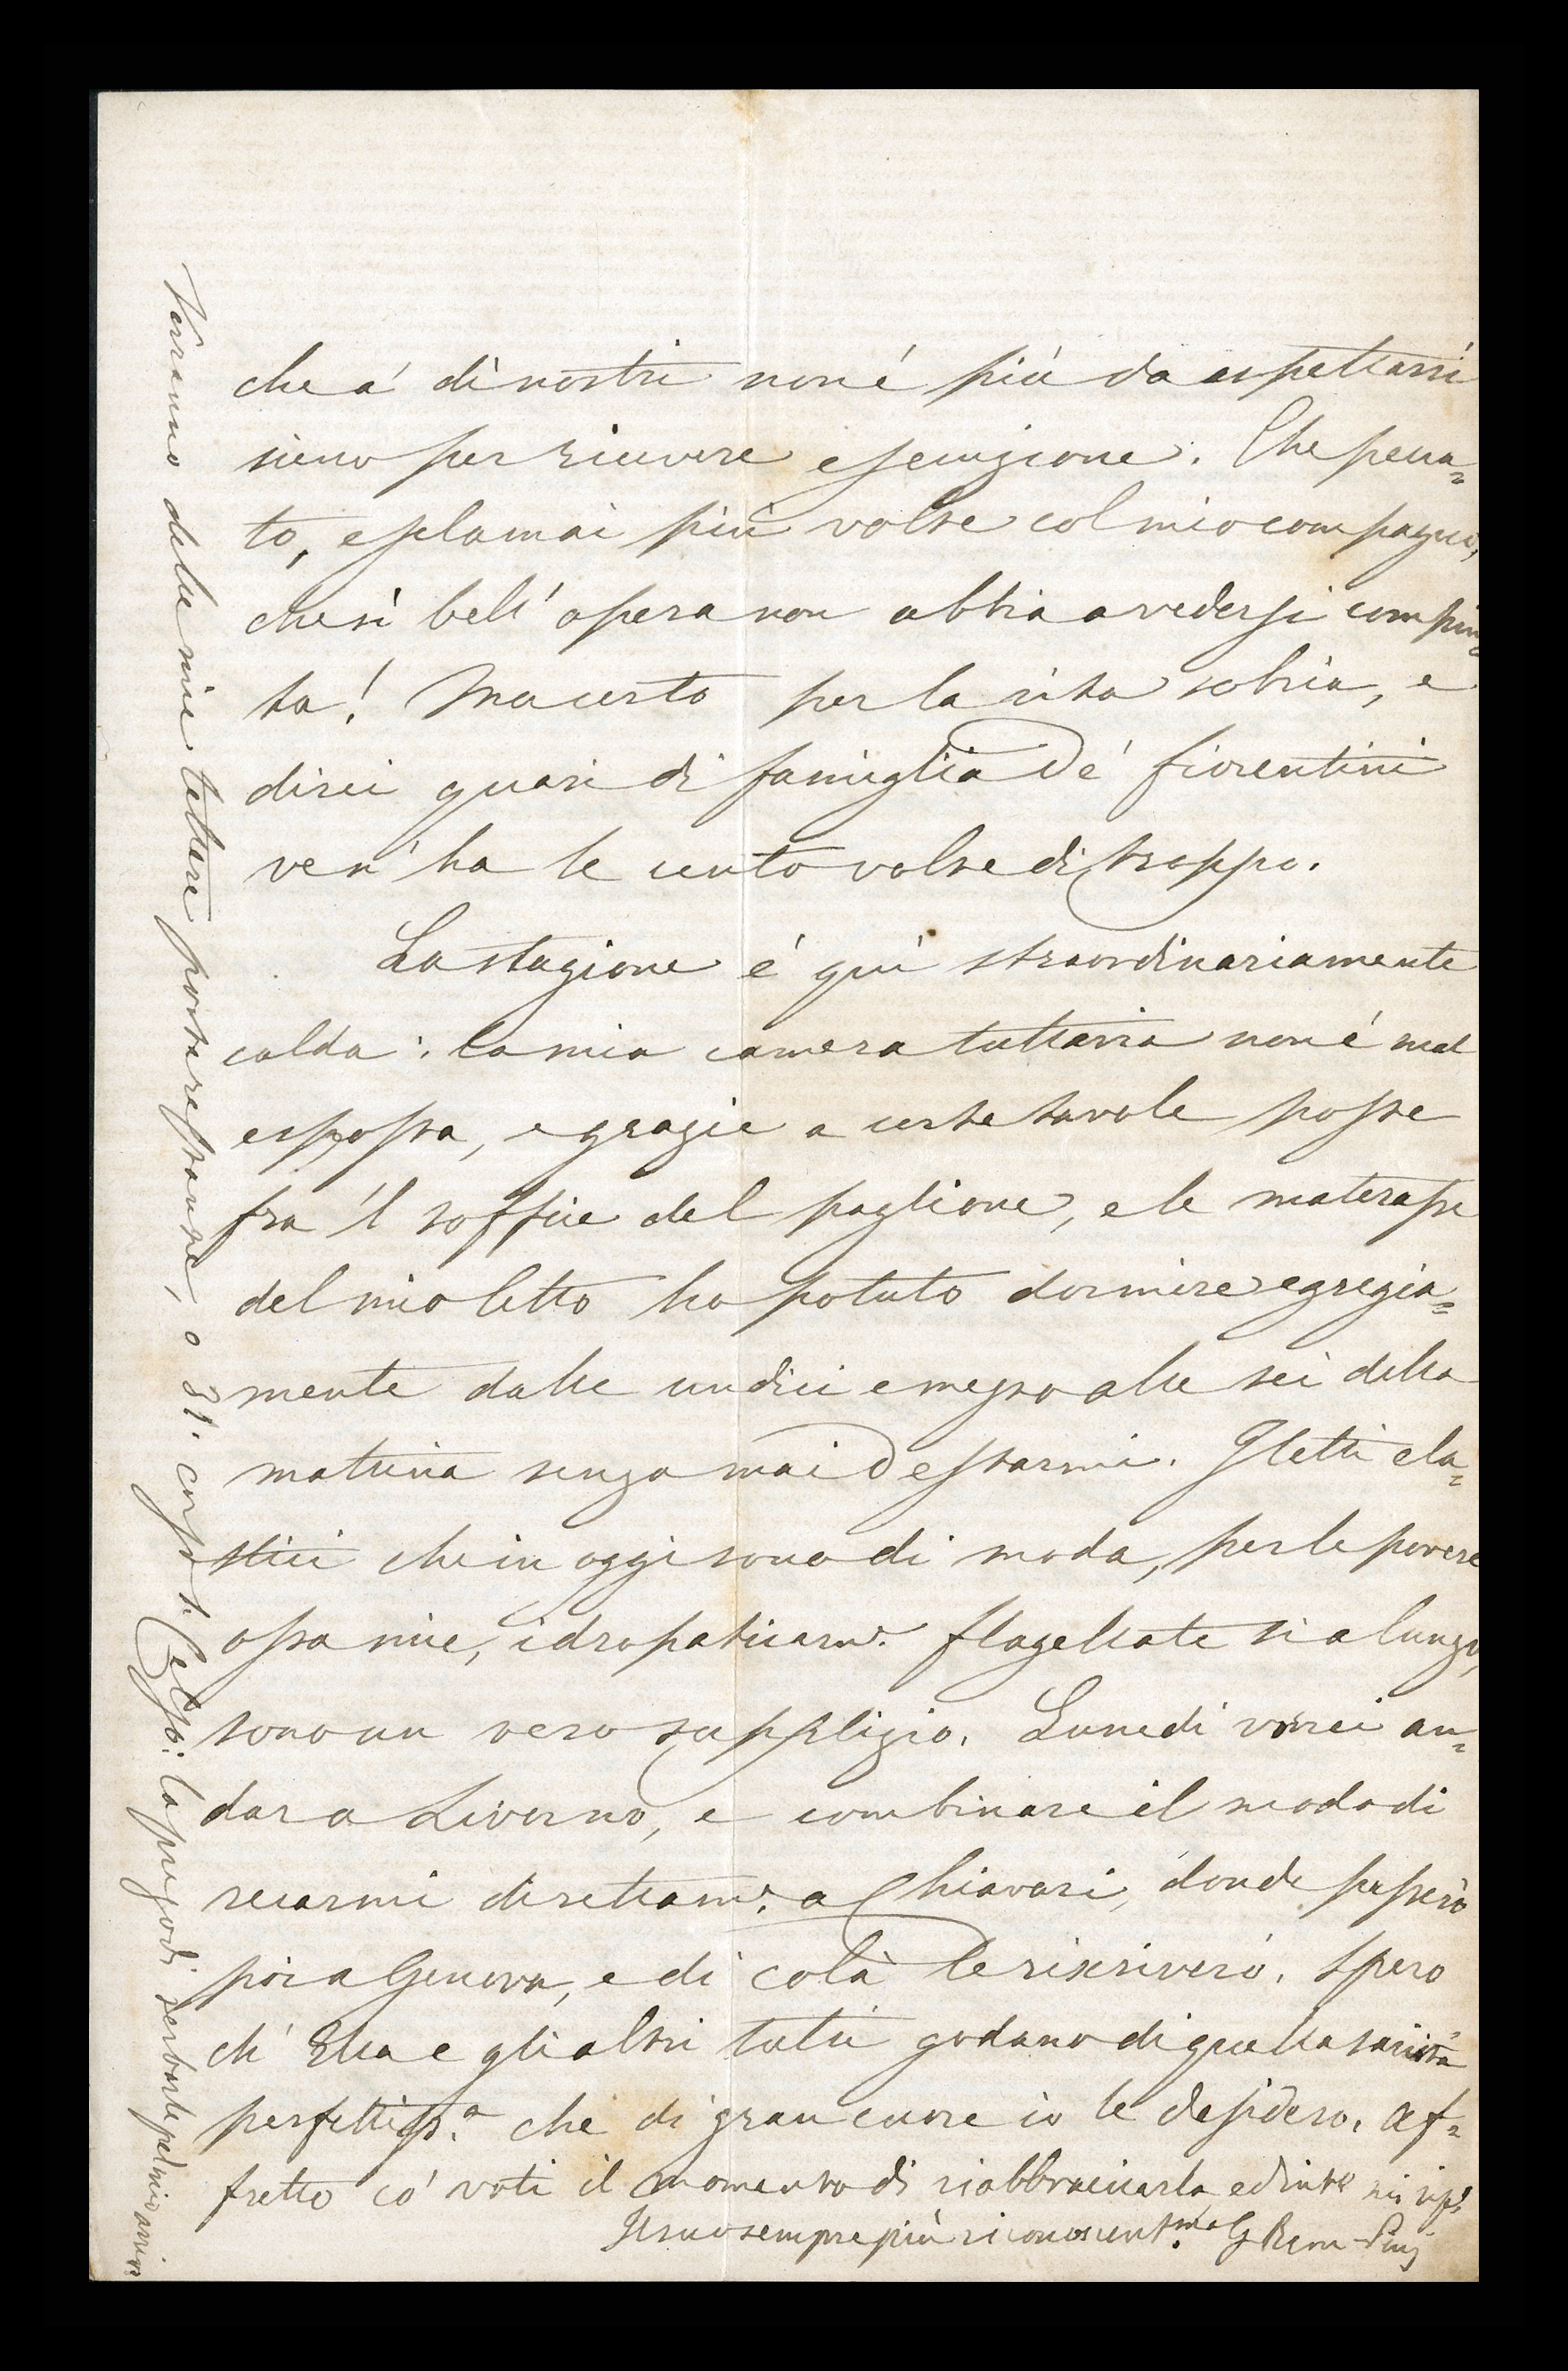 che a' dì nostri non é più da aspettarsi
sieno per ricevere esecuzione. Che pecca=
to, esclamai più volte col mio compagno,
che sì bell'opera non abbia a vedersi compiu=
ta! Ma certo per la vita sobria, e
direi quasi di famiglia de' fiorentini
ve n'ha le cento volte di troppo.
La stagione é quì straordinariamente
calda: la mia camera tuttavia non é mal
esposta, e grazie a certe tavole poste
fra 'l soffice del paglione, e le materasse
del mio letto ho potuto dormire egregia=
mente dalle undici e mezzo alle sei della
mattina senza mai destarmi. I letti ela=
stici che in oggi sono di moda, per le povere
ossa mie, idropaticam.e flagellate sì a lungo,
sono un vero supplizio. Lunedì vorrei an=
dar a Livorno, e combinare il modo di
recarmi direttam.e a Chiavari, donde passerò
poi a Genova, e di colà le riscriverò. Spero
ch' Ella e gli altri tutti godano di quella sanità
perfettiss.a che di gran cuore io le desidero. Af=
fretto co' voti il momento di riabbracciarla, ed int.o mi
Il suo sempre più riconoscent.mo G
Verranno delle mie lettere poste restante, o 31. corso t. Celso: la prego di serbarle pel mio arrivo